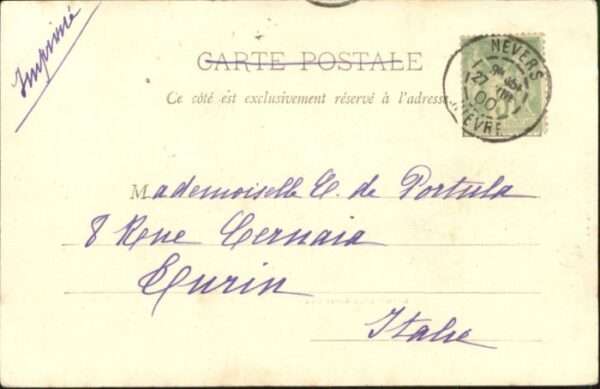 Imprimé
CARTE POSTALE
Ce côté est exclusivement réservé à l'adresse
NEVERS
27
00
NIEVRE
Mademoiselle C. de Portula
8 Rue Cernaia
Turin
Italie